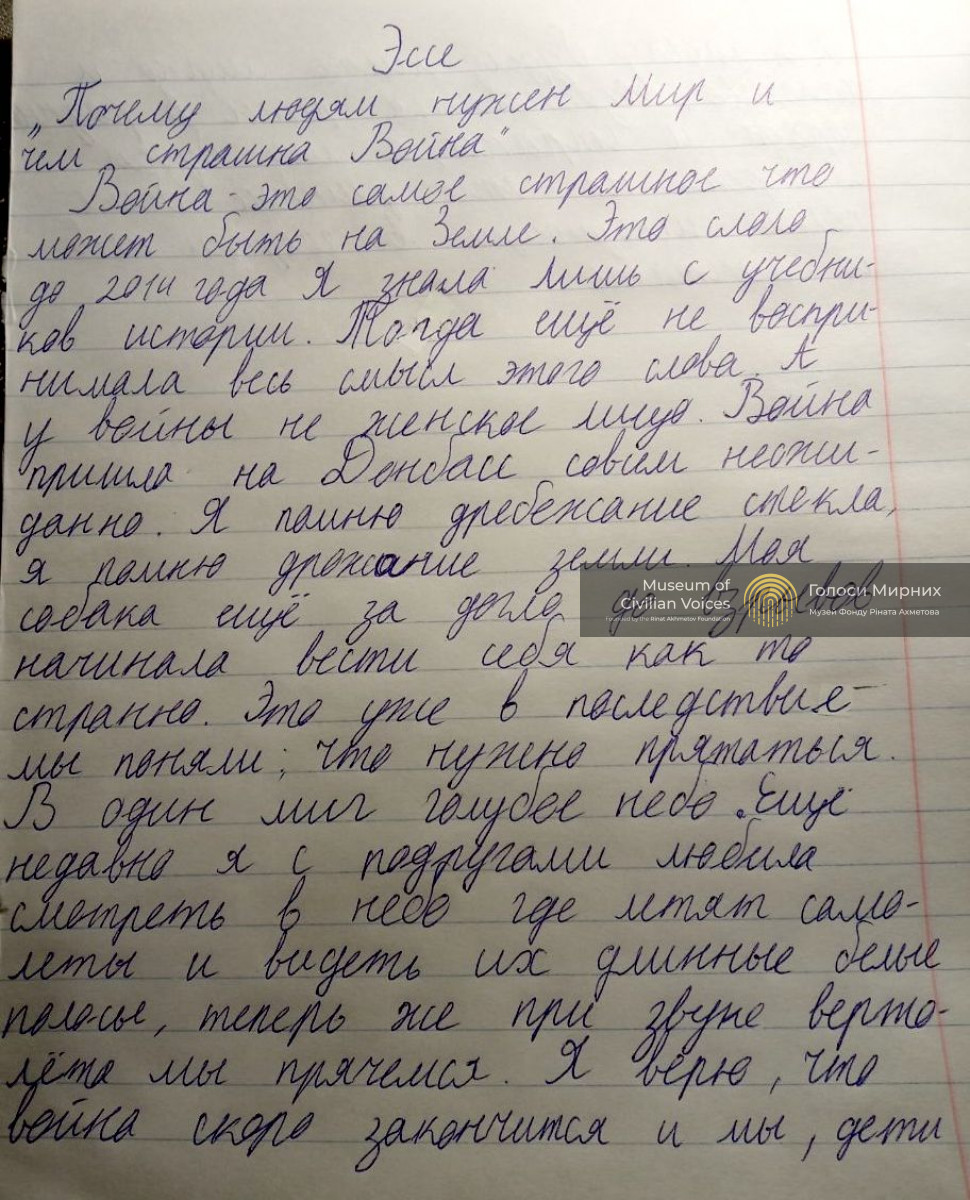 Эссе
„Почему людям нужен Мир и
чем страшна Война"
Война - это самое страшное что
может быть на Земле. Это слово
до 2014 года Я знала лишь с учебни-
ков истории. Тогда ещё не воспри-
нимала весь смысл этого слова. А
у войны не женское лицо. Война
пришла на Донбасс совсем неожи-
данно. Я помню дребежание стекла,
я помню дрожание земли. Моя
собака ещё за долго до взрывов
начинала вести себя как то
странно. Это уже в последствие
мы поняли, что нужно прятаться.
В один миг голубое небо. Ещё
недавно я с подругами любила
смотреть в небо где летят само-
леты и видеть их длинные белые
полосы, теперь же при звуке верто-
лёта мы прячемся. Я верю, что
война скоро закончится и мы, дети
Museum of
Civilian Voices
Founded by the Rinat Akhmetov Foundation
Голоси Мирних
Музей Фонду Ріната Ахметова